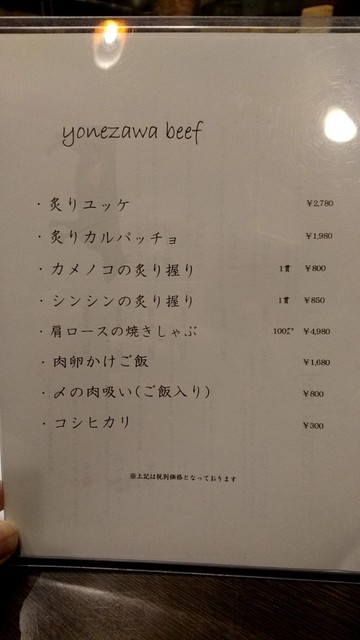 yonezawa beef
・炙りユッケ ￥2,780
・炙りカルパッチョ ￥1,980
・カメノコの炙り握り 1貫 ￥800
・シンシンの炙り握り 1貫 ￥850
・肩ロースの焼きしゃぶ 100㌘ ￥4,980
・肉卵かけご飯 ￥1,680
・〆の肉吸い(ご飯入り) ￥800
・コシヒカリ ￥300
※上記は税別価格となっております